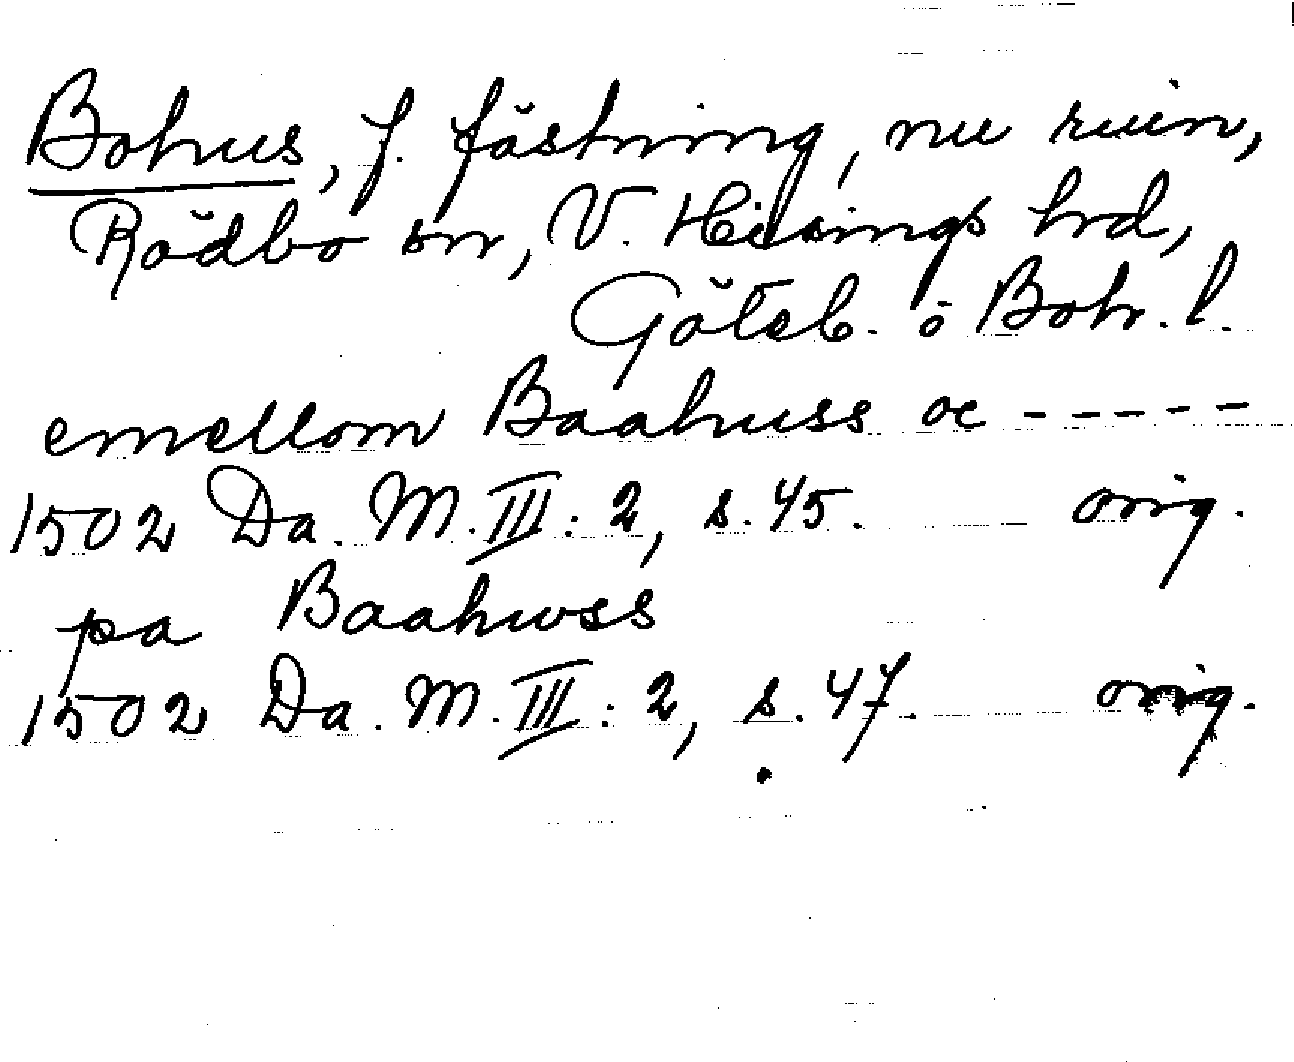 Bohus, f. fästning, nu ruin,
Rödbo sn, V. Hisings hrd,
Göteb. o Boh. l.
emellom Baahuss oc - - - - -
1502 Da. M. III: 2, s. 45. orig.
pa Baahwss
1502 Da. M. III: 2, s. 47. orig.